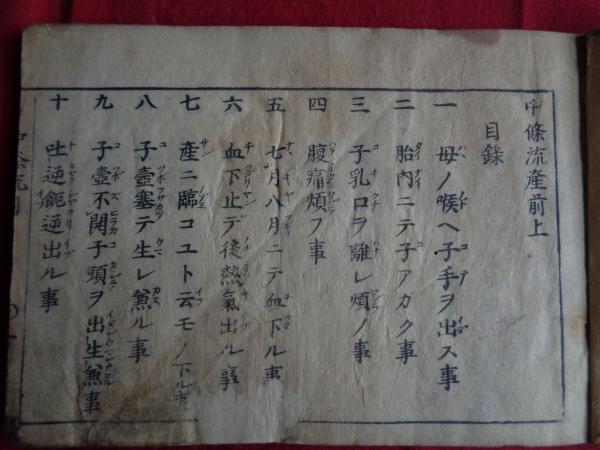 中條流産前上
目録
一 母ノ喉ヘ子手ヲ出ス事
二 胎内ニテ子アカク事
三 子乳口ヲ離レ煩ノ事
四 腹痛煩フ事
五 七月八月ニテ血下ル事
六 血下止デ後熱氣出ル事
七 産ニ臨コユト云モノ下ル事
八 子壺塞テ生レ兼ル事
九 子壺不開子頭ヲ出生兼事
十 吐逆 逆出ル事